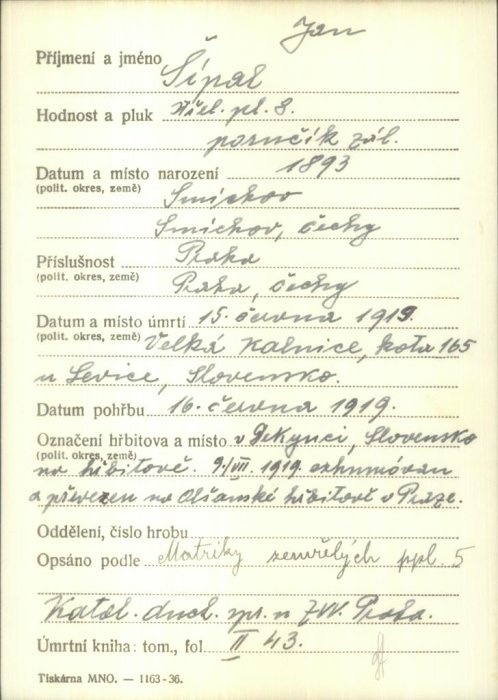 Jan
Příjmení a jméno Šípal
Hodnost a pluk Střel. pl. 8.
poručík zál.
Datum a místo narození 1893
(polit. okres, země) Smíchov
Smíchov, Čechy
Příslušnost Praha
(polit. okres, země) Praha, Čechy
Datum a místo úmrtí 15. června 1919.
(polit. okres, země) Velká Kalnice, kota 165
u Levice, Slovensko.
Datum pohřbu 16. června 1919.
Označení hřbitova a místo v Dekynci, Slovensko
(polit. okres, země)
na hřbitově. 9./VII. 1919 exhumován
a převezen na Olšanské hřbitově v Praze.
Oddělení, číslo hrobu
Opsáno podle Matriky zemřelých ppl. 5
Katol. duch. spr. u ZVV. Praha.
Úmrtní kniha: tom., fol. II 43.
Tiskárna MNO. — 1163-36.